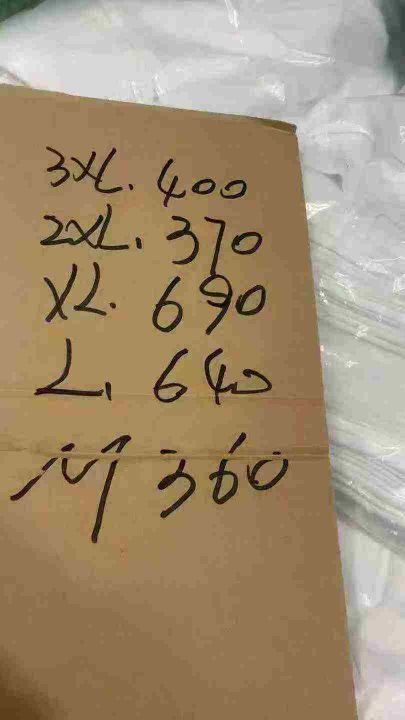 3XL. 400
2XL. 370
XL. 690
L. 640
M 360